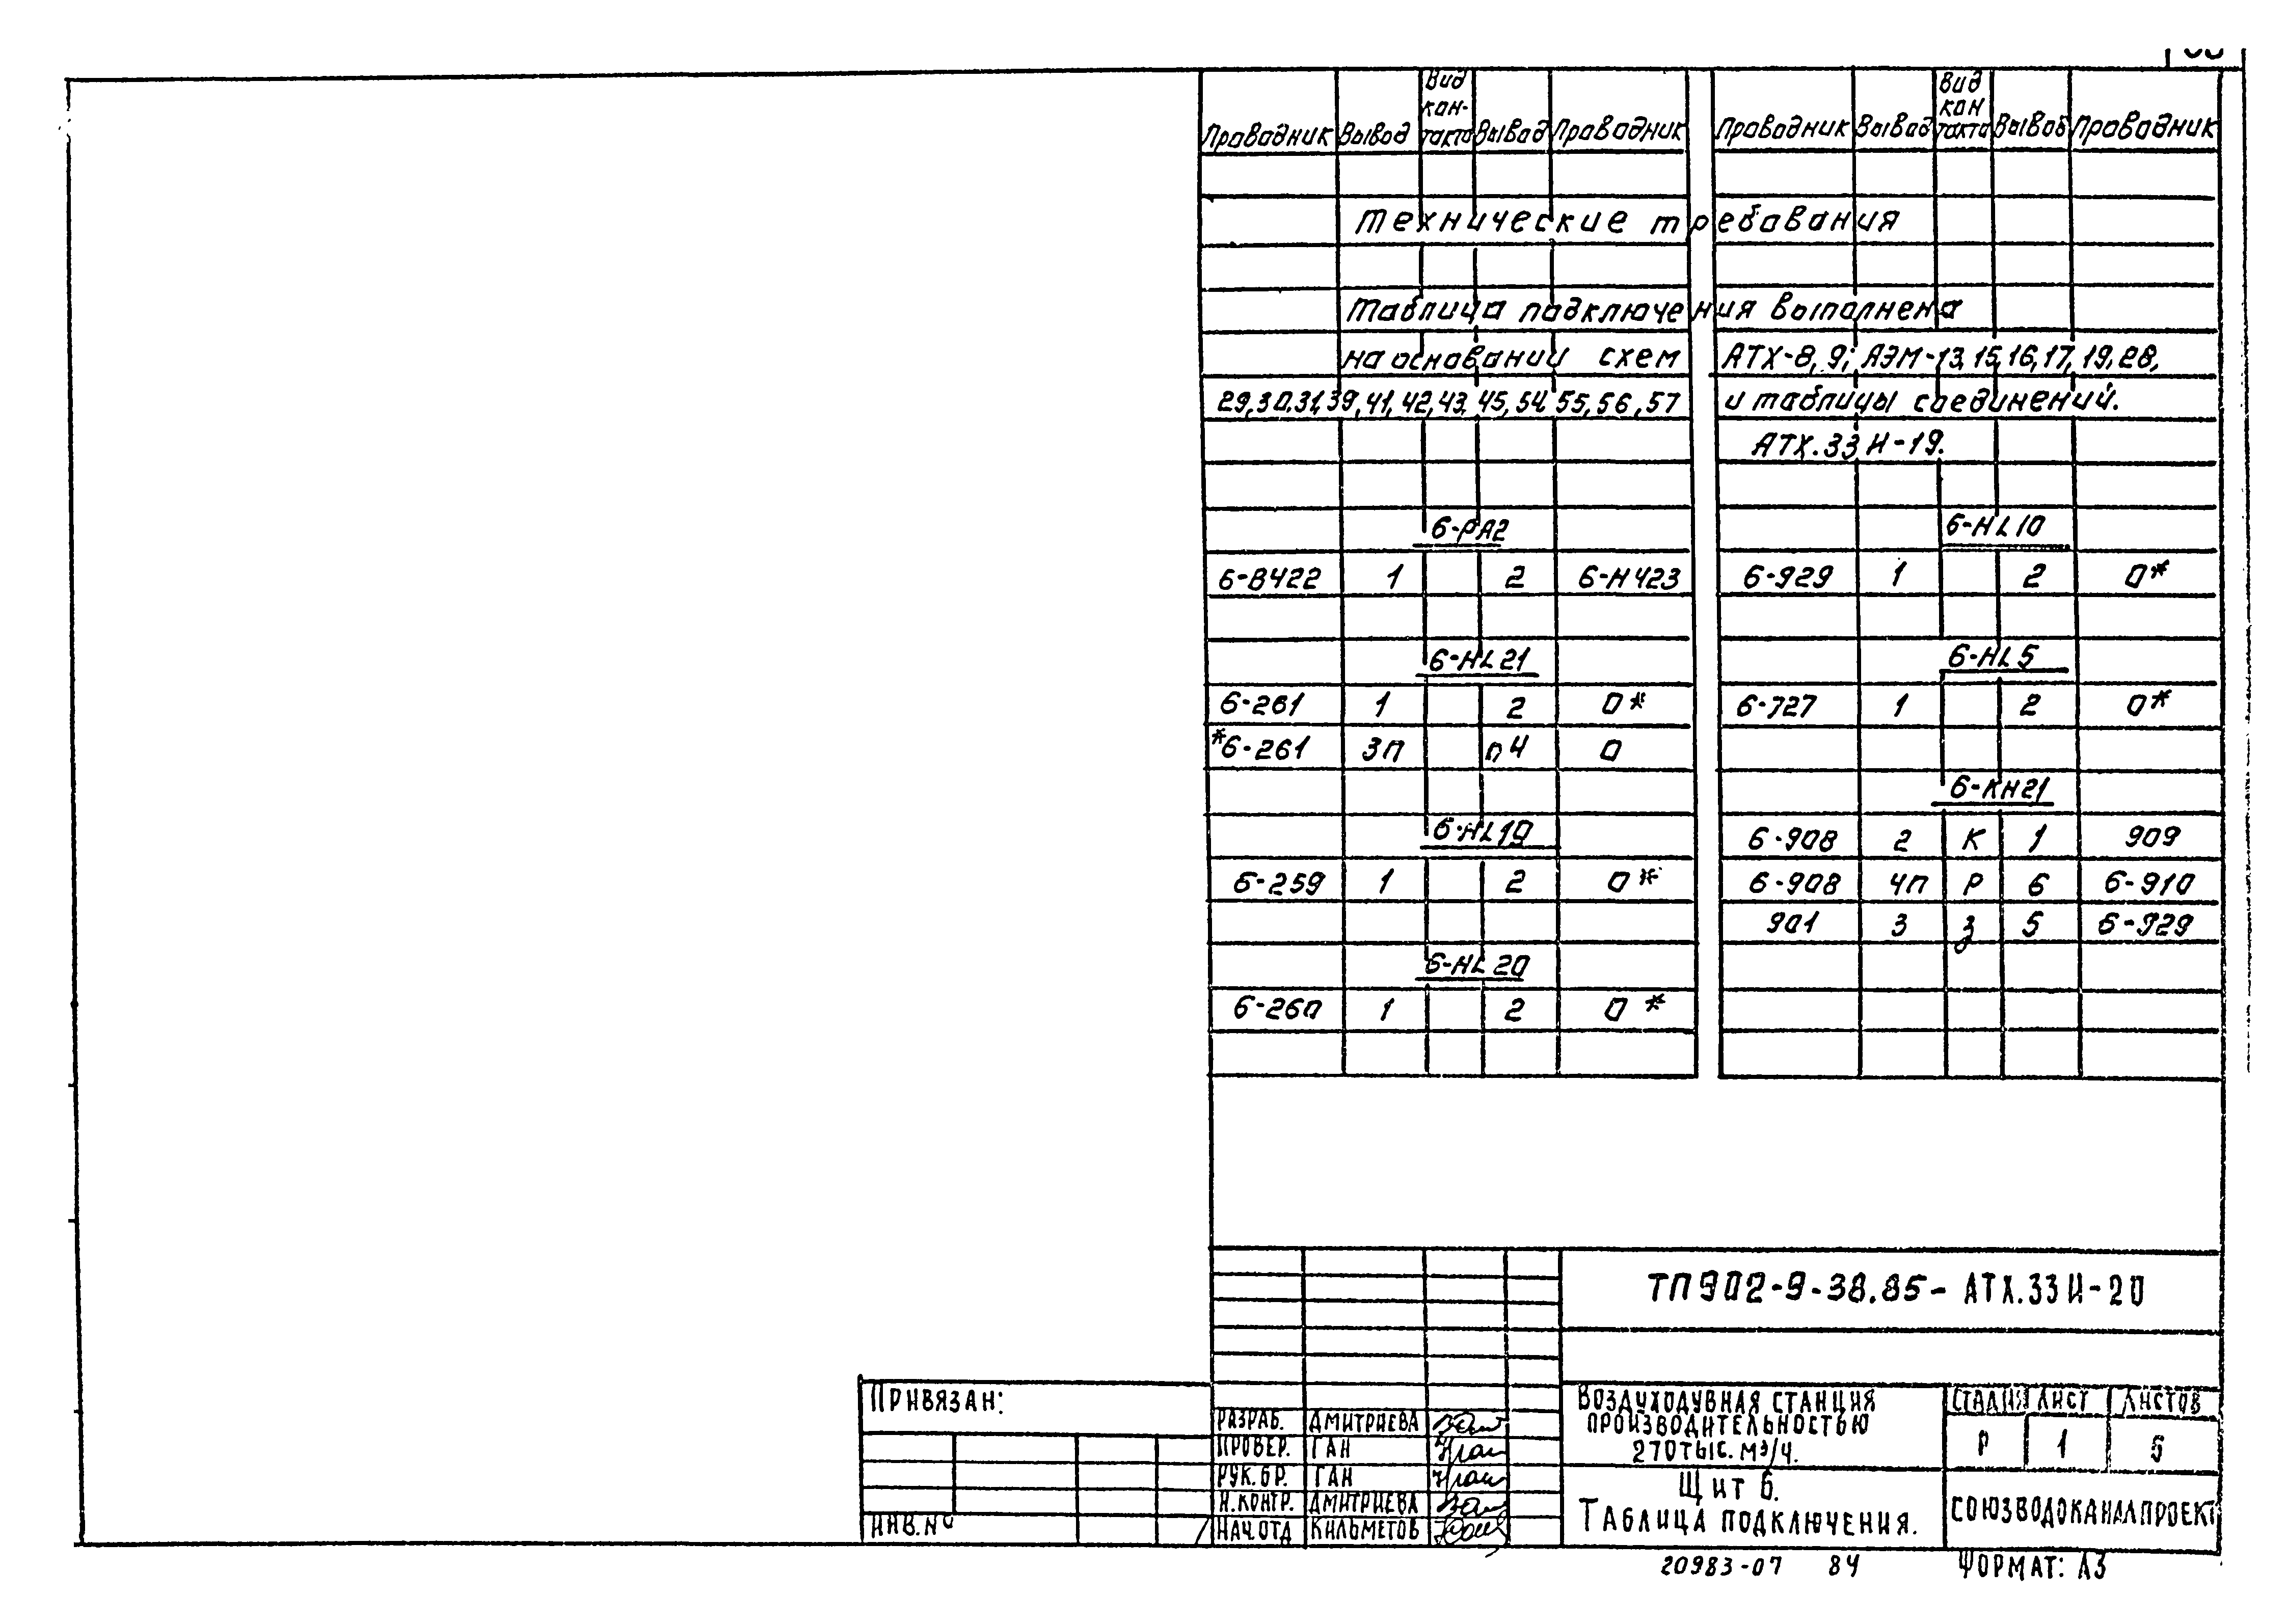 Проводник Вывод Вид кон-такта Вывод Проводник
Проводник Вывод Вид кон такта Вывод Проводник
Технические требования
Таблица подключения выполнена
на основании схем АТХ-8, 9; АЭМ-13,15,16,17,19,28,
29,30,31,39,41,42,43,45,54,55,56,57 и таблицы соединений.
АТХ.33И-19.
6-PA2
6-В422 1 2 6-Н423
6-HL21
6-261 1 2 0*
*6-261 3П п4 0
6-HL19
6-259 1 2 0*
6-HL20
6-260 1 2 0*
6-HL10
6-929 1 2 0*
6-HL5
6-727 1 2 0*
6-КН21
6-908 2 К 1 909
6-908 4П Р 6 6-910
901 3 З 5 6-929
ТП902-9-38.85- АТХ.33И-20
Привязан:
ИНВ.№
РАЗРАБ. ДМИТРИЕВА
ПРОВЕР. ГАН
РУК.БР. ГАН
Н.КОНТР. ДМИТРИЕВА
НАЧ.ОТД КИЛЬМЕТОВ
ВОЗДУХОДУВНАЯ СТАНЦИЯ
ПРОИЗВОДИТЕЛЬНОСТЬЮ
270ТЫС. М³/Ч.
ЩИТ 6.
ТАБЛИЦА ПОДКЛЮЧЕНИЯ.
СТАДИЯ ЛИСТ ЛИСТОВ
Р 1 5
СОЮЗВОДОКАНАЛПРОЕКТ
20983-07 84 ФОРМАТ: А3